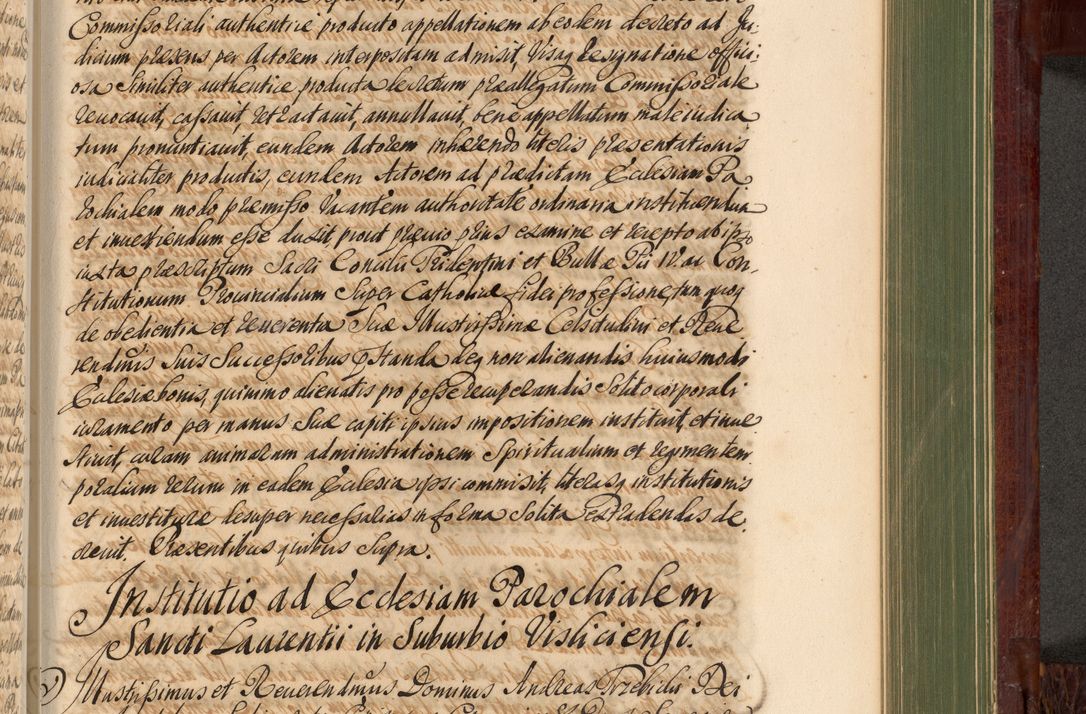 Commissoriali authentice producto appellationem ab eodem decreto ad Ju-
dicium praesens per Actorem interpositam admisit, Visaq designatione offici-
osa similiter authentice producta decretum praeallegatum Commissoriale
revocavit, cassavit, retractavit, annullavit, bene appellatum male iudica
tum pronuntiavit, eundem Actorem inhaerendo literis praesentationis
iudicialiter productis, eundem Actorem ad praedictam Ecclesiam Pa
rochialem modo praemisso vacantem authoritate ordinaria instituendum
et investiendum esse duxit prout praevio prius examine et recepto ab ipso
iuxta praescriptum Sacri Concilii Tridentini et Bullae Pii IV. ac Con-
stitutionum Provincialium super Catholicae fidei professione, tum quoq
de obedientia et reverentia Suae Illustrissimae Celsitudini et Reve
rendmis Suis Successoribus pstanda deq non alienandis huiusmodi
Ecclesiae bonis, quinimo alienatis pro posse recuperandis solito corporali
iuramento per manus Suae capiti ipsius impositionem instituit, et inve
stivit, curam animarum administrationem Spiritualium et regimen tem
poralium rerum in eadem Ecclesia ipsi commisit, literasq institutionis
et investiturae desuper necessarias in forma solita extradendas de
crevit. Praesentibus quibus supra.
Institutio ad Ecclesiam Parochialem
Sancti Laurentii in Suburbio Visliciensi.
Illustrissimus et Reverendmus Dominus Andreas Trzebicki Dei